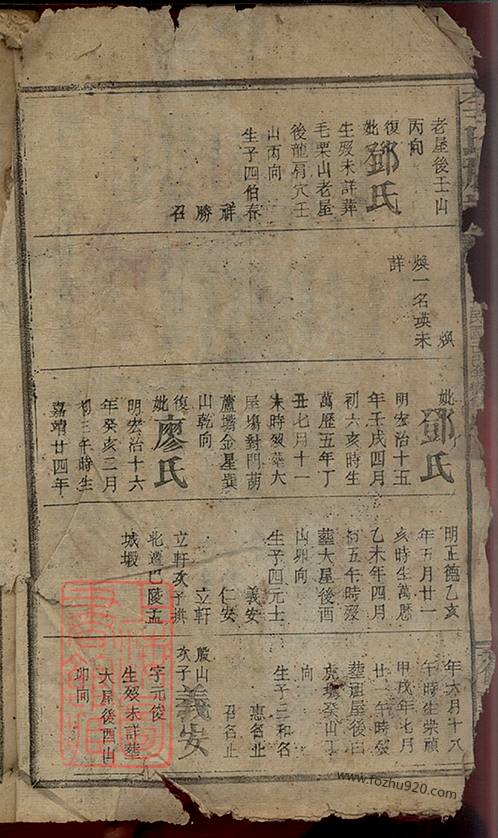 老屋後壬山
丙向
復後
妣鄧氏
生歿未詳葬
毛栗山老屋
後龍肩穴壬
山丙向
生子四伯春
祥
勝
召
煥
煥一名瑛未
詳
妣鄧氏
明宏治十五
年壬戌四月
初六亥時生
萬歷五年丁
丑七月十一
未時歿葬大
屋塲對門葫
蘆壋金星巽
山乾向
復
妣廖氏
明宏治十六
年癸亥二月
初三午時生
嘉靖廿四年
明正德乙亥
年五月廿一
亥時生萬歷
乙未年四月
初五午時歿
葬大屋後酉
山卯向
生子四元士
義安
仁安
立軒
立軒次子拱
北遷巴陵孟
城塅
年六月十八
午時生崇禎
甲戌年七月
廿一午時歿
葬祖屋後白
虎壋癸山丁
向
生子三和名
惠名止
召名止
殿山
次子義安
字元俊
生歿未詳葬
大屋後酉山
卯向
www.fozhu920.com